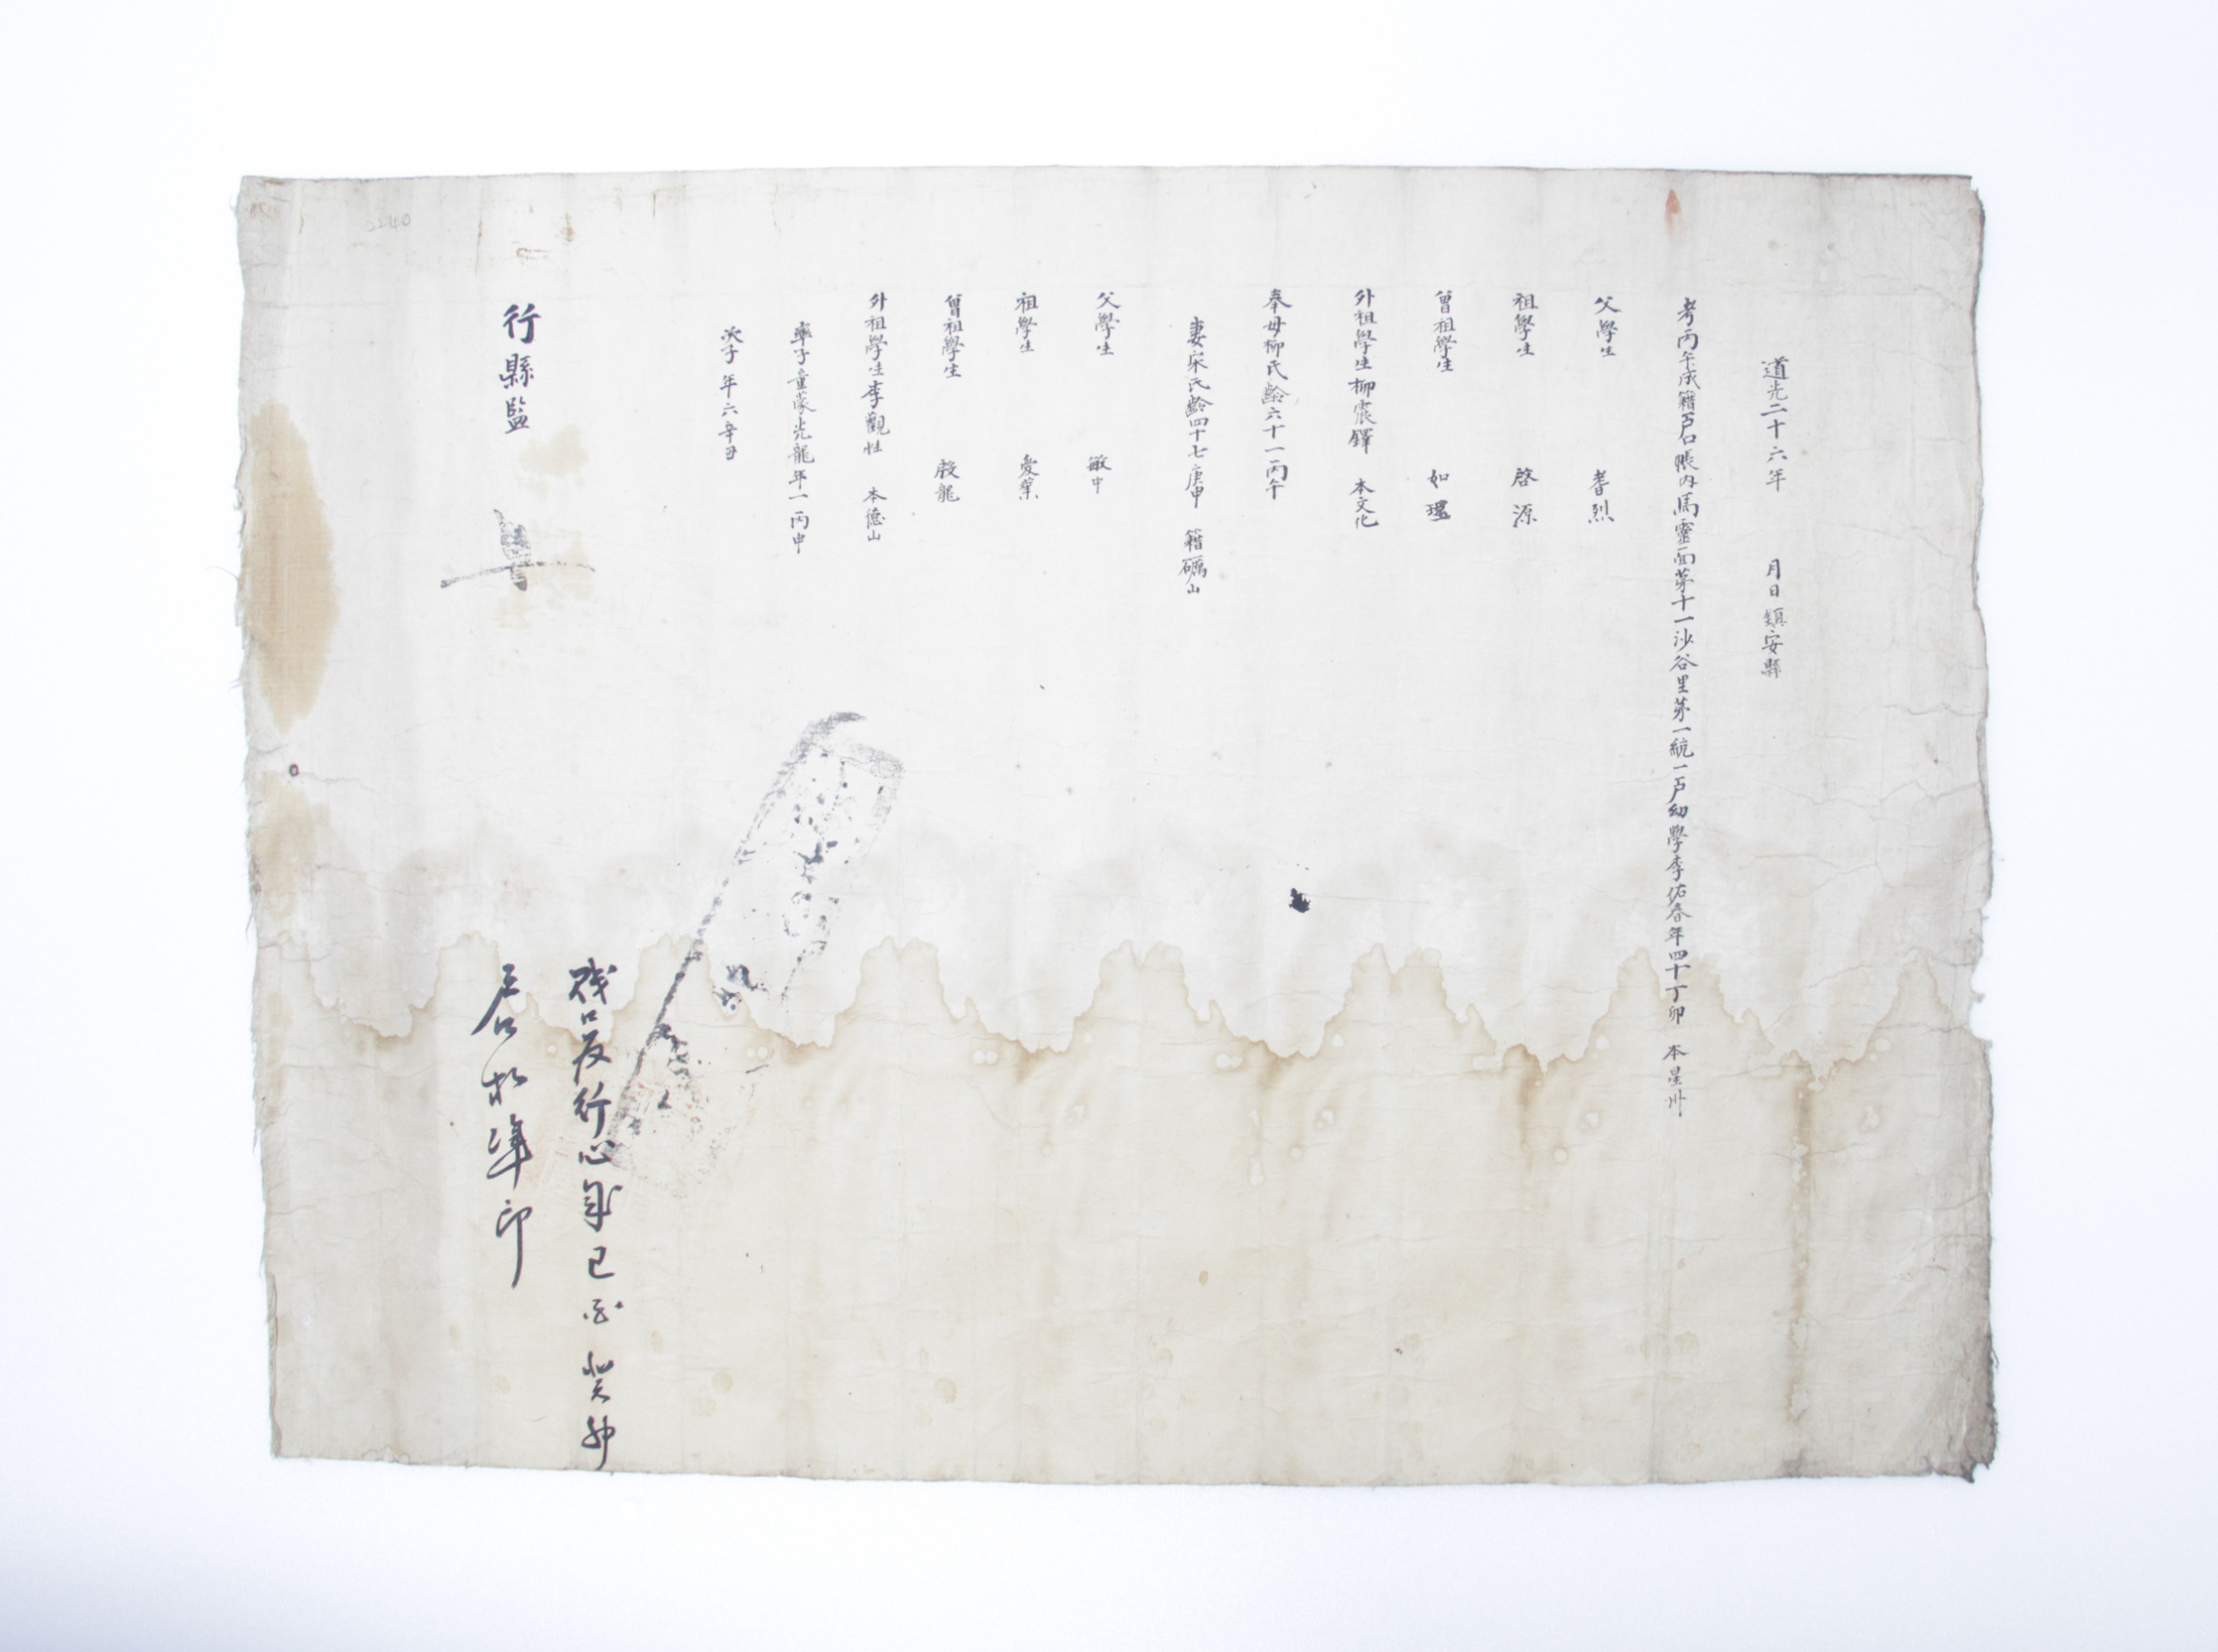 道光二十六年 月日鎮安縣
考丙午成籍戶口帳內馬靈面苐十一沙谷里苐一統一戶幼學李佑春年四十丁卯 本星州
父學生 耆烈
祖學生 啓源
曾祖學生 如
外祖學生柳震鐸 本文化
奉母柳氏齡六十一丙午
妻宋氏齡四十七庚申 籍礪山
父學生 敏中
祖學生 愛業
曾祖學生 殷龍
外祖學生李觀性 本德山
率子童蒙光龍年一丙申
次子年六辛丑
行縣監
戶口相準印
2240